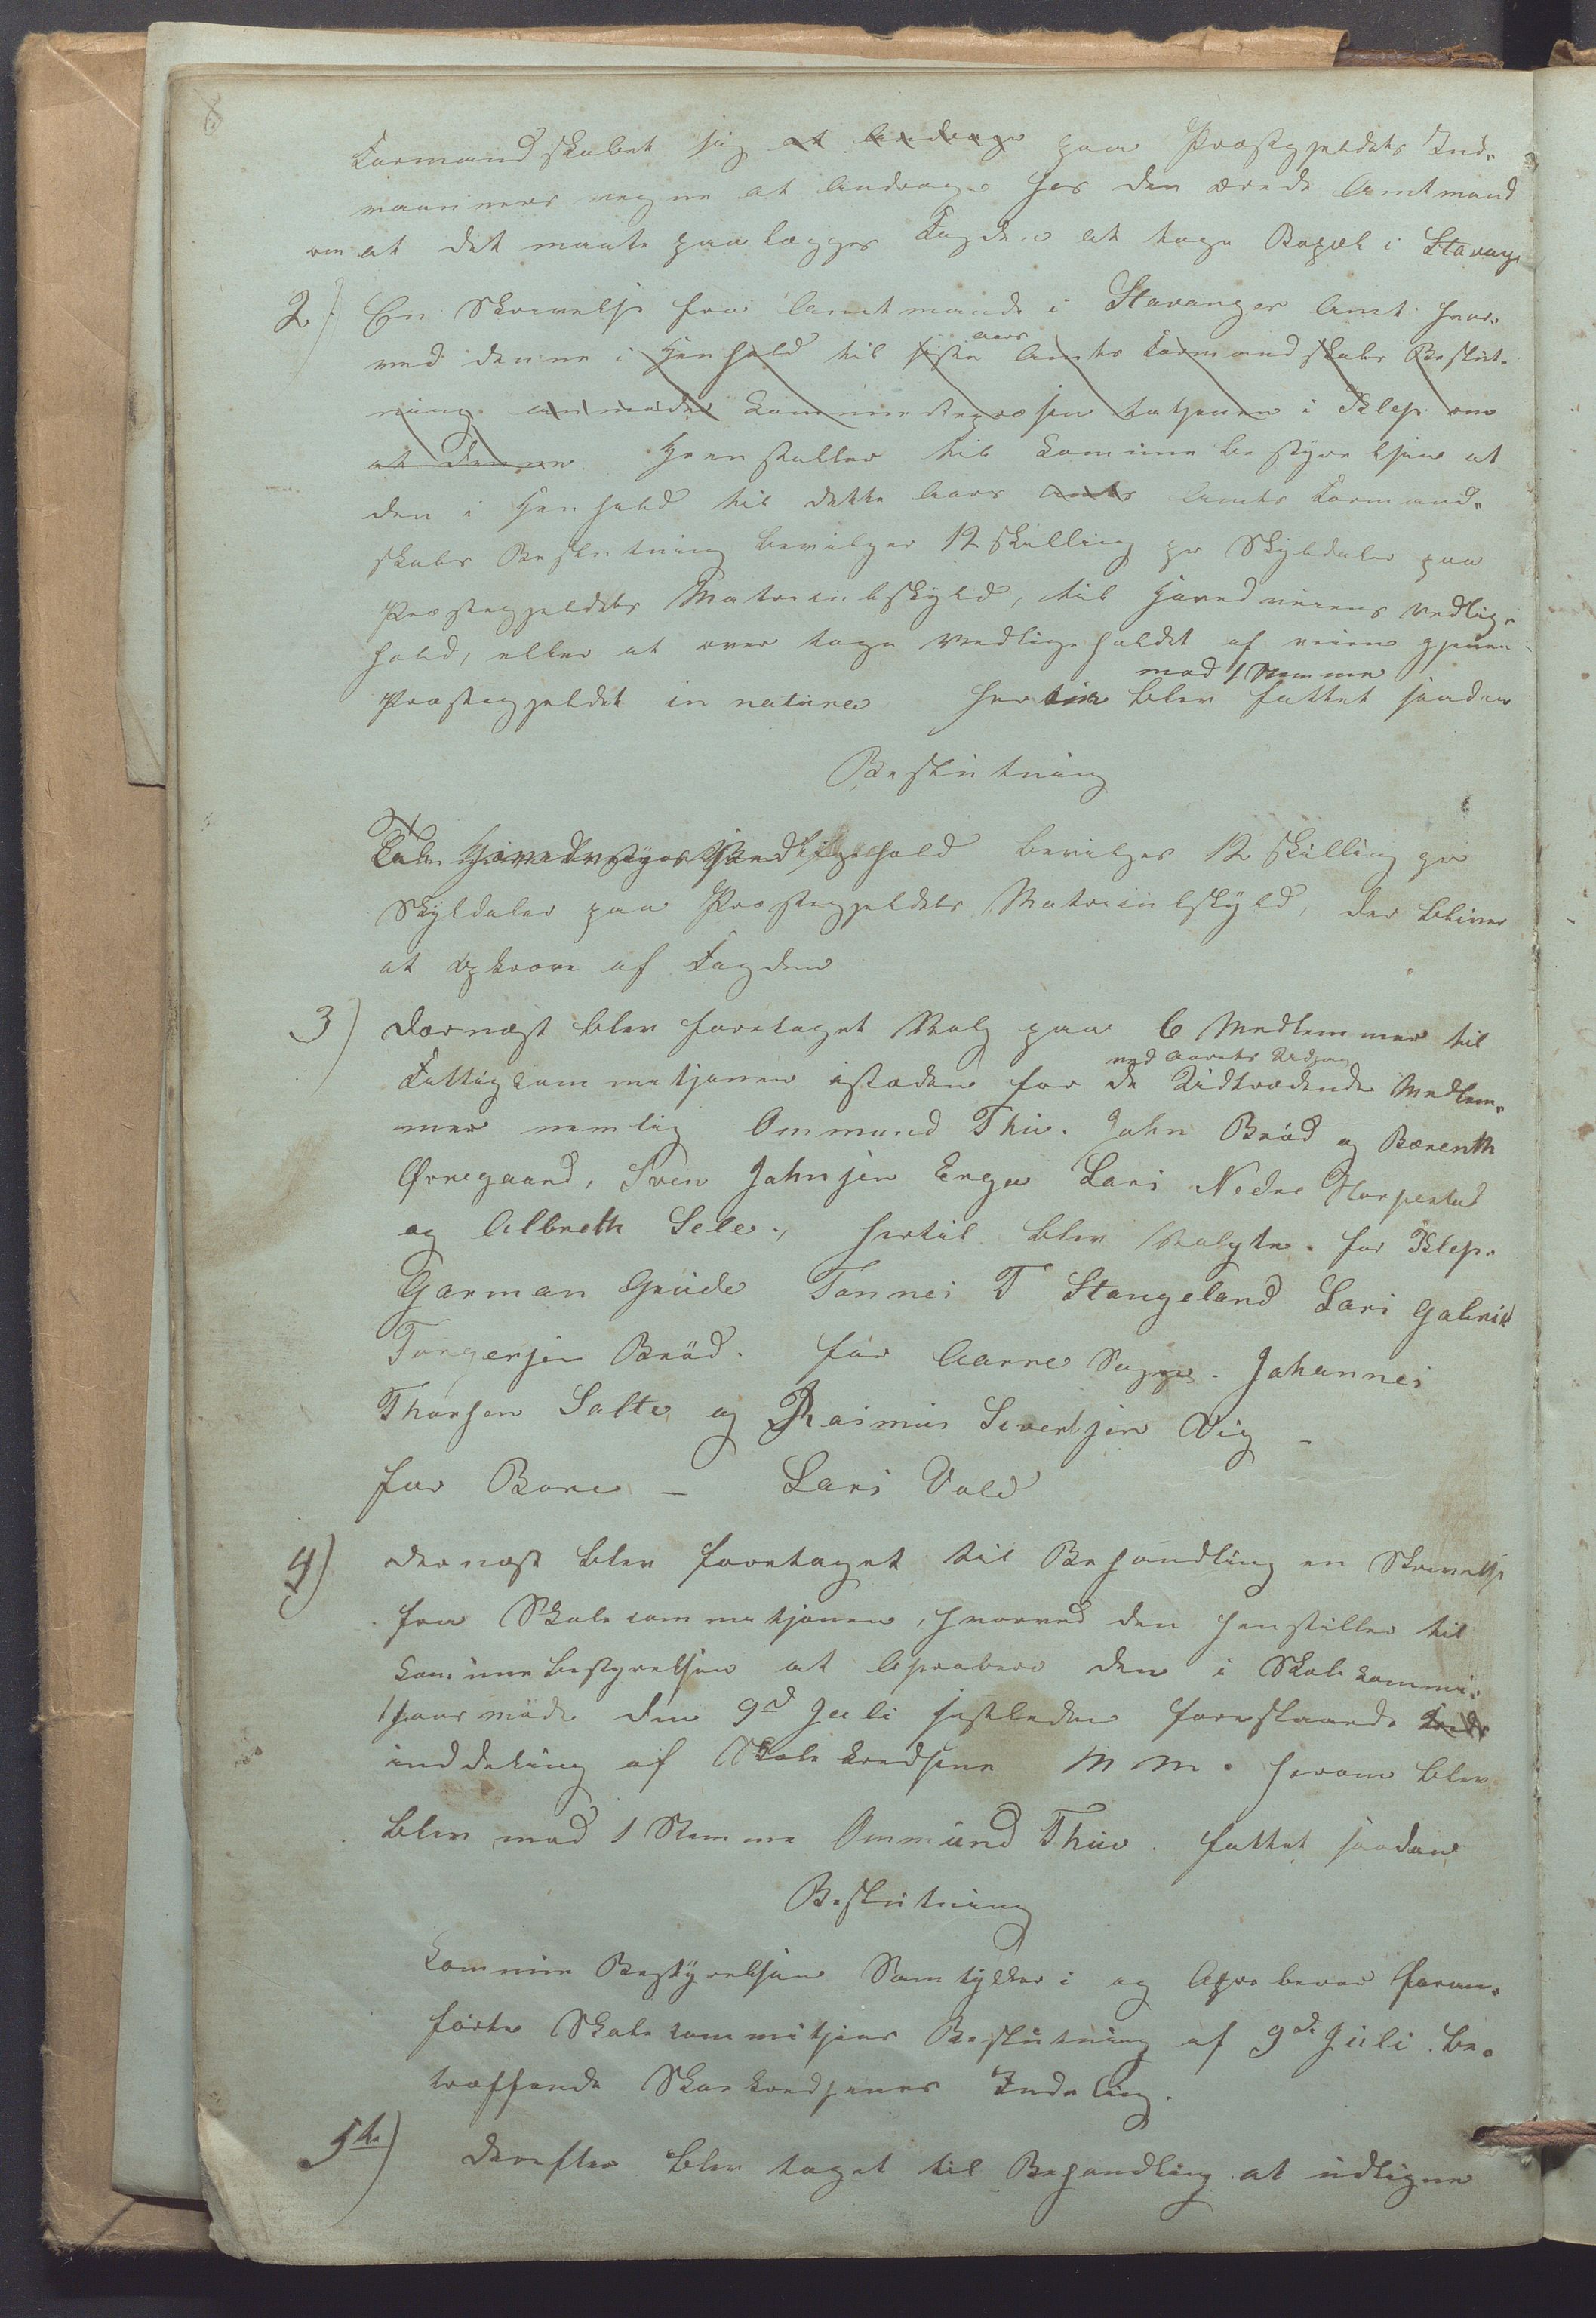 Formandskabet sig at andrage paa Præstegjeldets Ind-
vaaneres vegne at Andrage hos den ærede Amtmand
om at det maate paalægges Fogden at tage Bopæl i Stavang
2) En Skrivelse fra Amtmanden i Stavanger Amt hvor-
ved denne i Henhold til siste Aars Amts Formandskabs Beslut-
ning anmoder Kommunerepræsentatjonen i Klep om
at denne Henstaller til Kommunebestyrelsen at
den i Henhold til dette Aars Amts Amts Formand-
skabs Beslutning bevilger 12 skilling pr Skyldaler paa
Præstegjeldets Matriculskyld, til Hovedveiens vedlige-
hold, eller at over tage Vedligeholdet af veien gjenem
Præstegjeldet in natura hertil blev mod 1 Stemme fattet saadan
Beslutning
Til Hovedveiens Vedligehold bevilges 12 skilling pr
Skyldaler paa Præstegjeldets Matriculskyld, der bliver
at opkræve af Fogden
3) Dernæst blev foretaget Valg paa 6 Medlemmer til
Fattigcommitjonen istæden for de ved Aarets Udgang Udtrædende Medlem-
mer nemlig Ommund Thu. John Bröd og Bærenth
Ørregaard, Sven Johnsen Erga Lars Nedre Horpestad
og Albreth Sele., hertil blev Valgte. for Klep.
Garman Grude Tønnes T Stangeland Lars Gabriel
Torgersen Bröd. for Aarre Sogn. Johannes
Thorsen Salte og Rasmus Sivertsen Vig –
for Bore – Lars Vold
4) Dernæst blev foretaget til Behandling en Skrivelse
fra Skolecommitjonen, hvorved den henstiller til
Kommunebestyrelsen at Aprobere den i Skolekommi-
tsions møde den 9d Juli sistleden foreslaaede
inddeling af Skolekredsene M M. herom blev
blev mod 1 Stemme Ommund Thu. fattet saadan
Beslutning
Kommune Bestyrelsen Samtykker i og Aproberer foran-
førte Skolecommitjons Beslutning af 9de Juli. be-
træffende Skolekredsenes Indeling.
5te) Derefter blev taget til Behandling at udligne